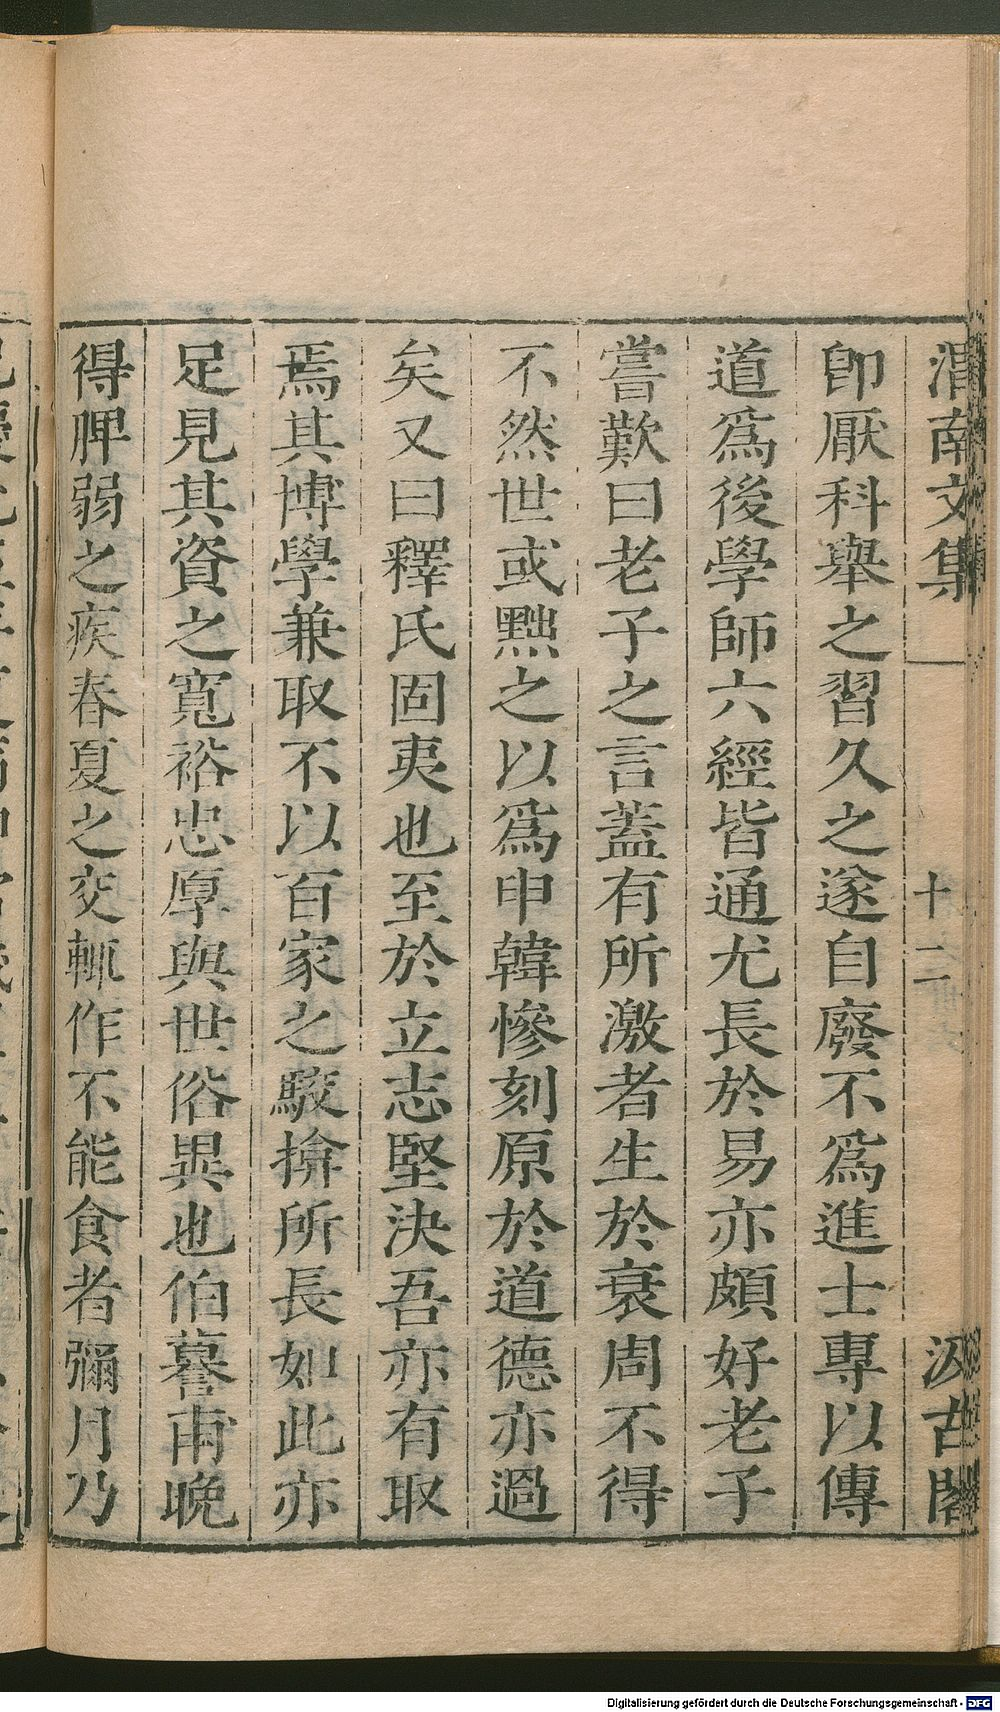 渭南文集 十二 汲古閣
卽厭科舉之習久之遂自廢不爲進士專以傳
道爲後學師六經皆通尤長於易亦頗好老子
嘗歎曰老子之言蓋有所激者生於衰周不得
不然世或黜之以爲申韓慘刻原於道德亦過
矣又曰釋氏固夷也至於立志堅決吾亦有取
焉其博學兼取不以百家之駮揜所長如此亦
足見其資之寬裕忠厚與世俗異也伯謩甫晚
得脾弱之疾春夏之交輒作不能食者彌月乃
Digitalisierung gefördert durch die Deutsche Forschungsgemeinschaft - DFG